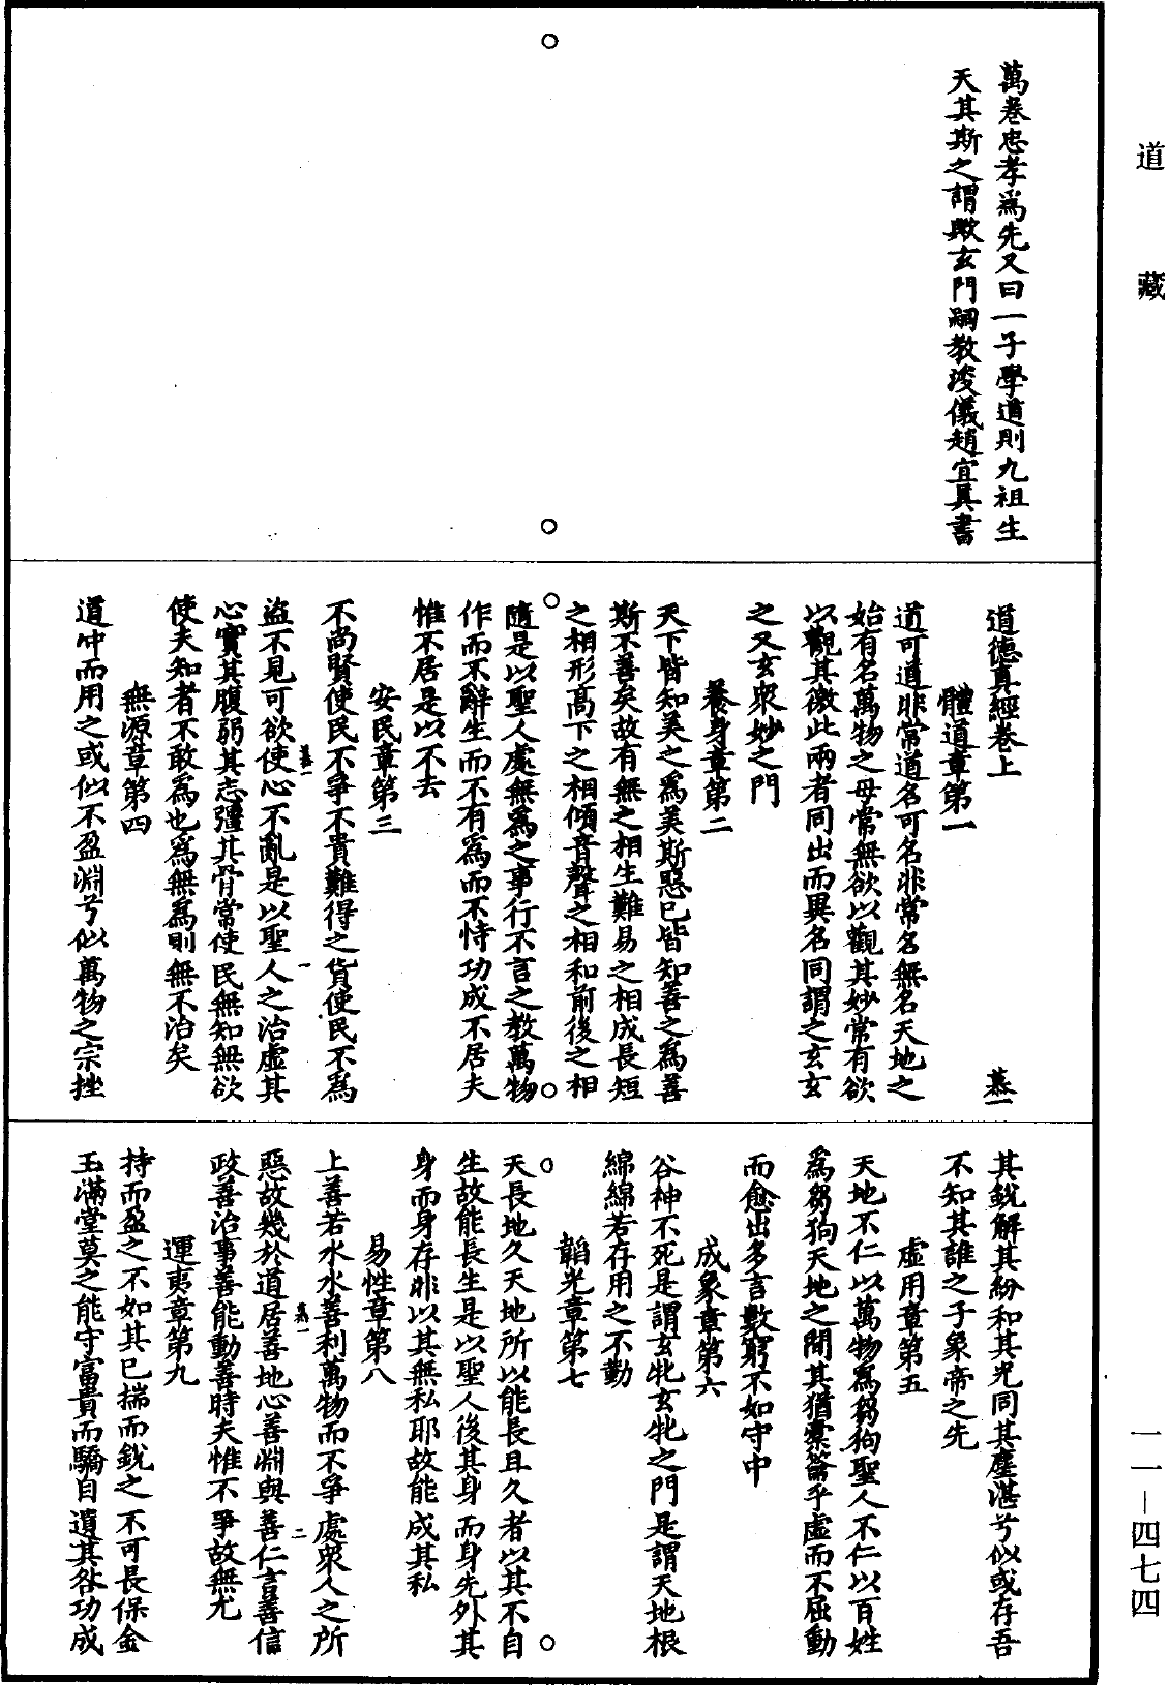 道藏
萬卷忠孝爲先又曰一子學道則九祖生
天其斯之謂歟玄門嗣教浚儀趙宜真書
道德真經卷上 慕一
體道章第一
道可道非常道名可名非常名無名天地之
始有名萬物之母常無欲以觀其妙常有欲
以觀其徼此兩者同出而異名同謂之玄玄
之又玄衆妙之門
養身章第二
天下皆知美之爲美斯惡已皆知善之爲善
斯不善矣故有無之相生難易之相成長短
之相形高下之相傾音聲之相和前後之相
隨是以聖人處無爲之事行不言之教萬物
作而不辭生而不有爲而不恃功成不居夫
惟不居是以不去
安民章第三
不尚賢使民不爭不貴難得之貨使民不爲
慕一 一
盜不見可欲使心不亂是以聖人之治虛其
心實其腹弱其志彊其骨常使民無知無欲
使夫知者不敢爲也爲無爲則無不治矣
無源章第四
道冲而用之或似不盈淵兮似萬物之宗挫
其銳解其紛和其光同其塵湛兮似或存吾
不知其誰之子象帝之先
虛用章第五
天地不仁以萬物爲芻狗聖人不仁以百姓
爲芻狗天地之間其猶橐籥乎虛而不屈動
而愈出多言數窮不如守中
成象章第六
谷神不死是謂玄牝玄牝之門是謂天地根
綿綿若存用之不勤
韜光章第七
天長地久天地所以能長且久者以其不自
生故能長生是以聖人後其身而身先外其
身而身存非以其無私耶故能成其私
易性章第八
上善若水水善利萬物而不爭處衆人之所
慕一 二
惡故幾於道居善地心善淵與善仁言善信
政善治事善能動善時夫惟不爭故無尤
運夷章第九
持而盈之不如其已揣而銳之不可長保金
玉滿堂莫之能守富貴而驕自遺其咎功成
一一－四七四